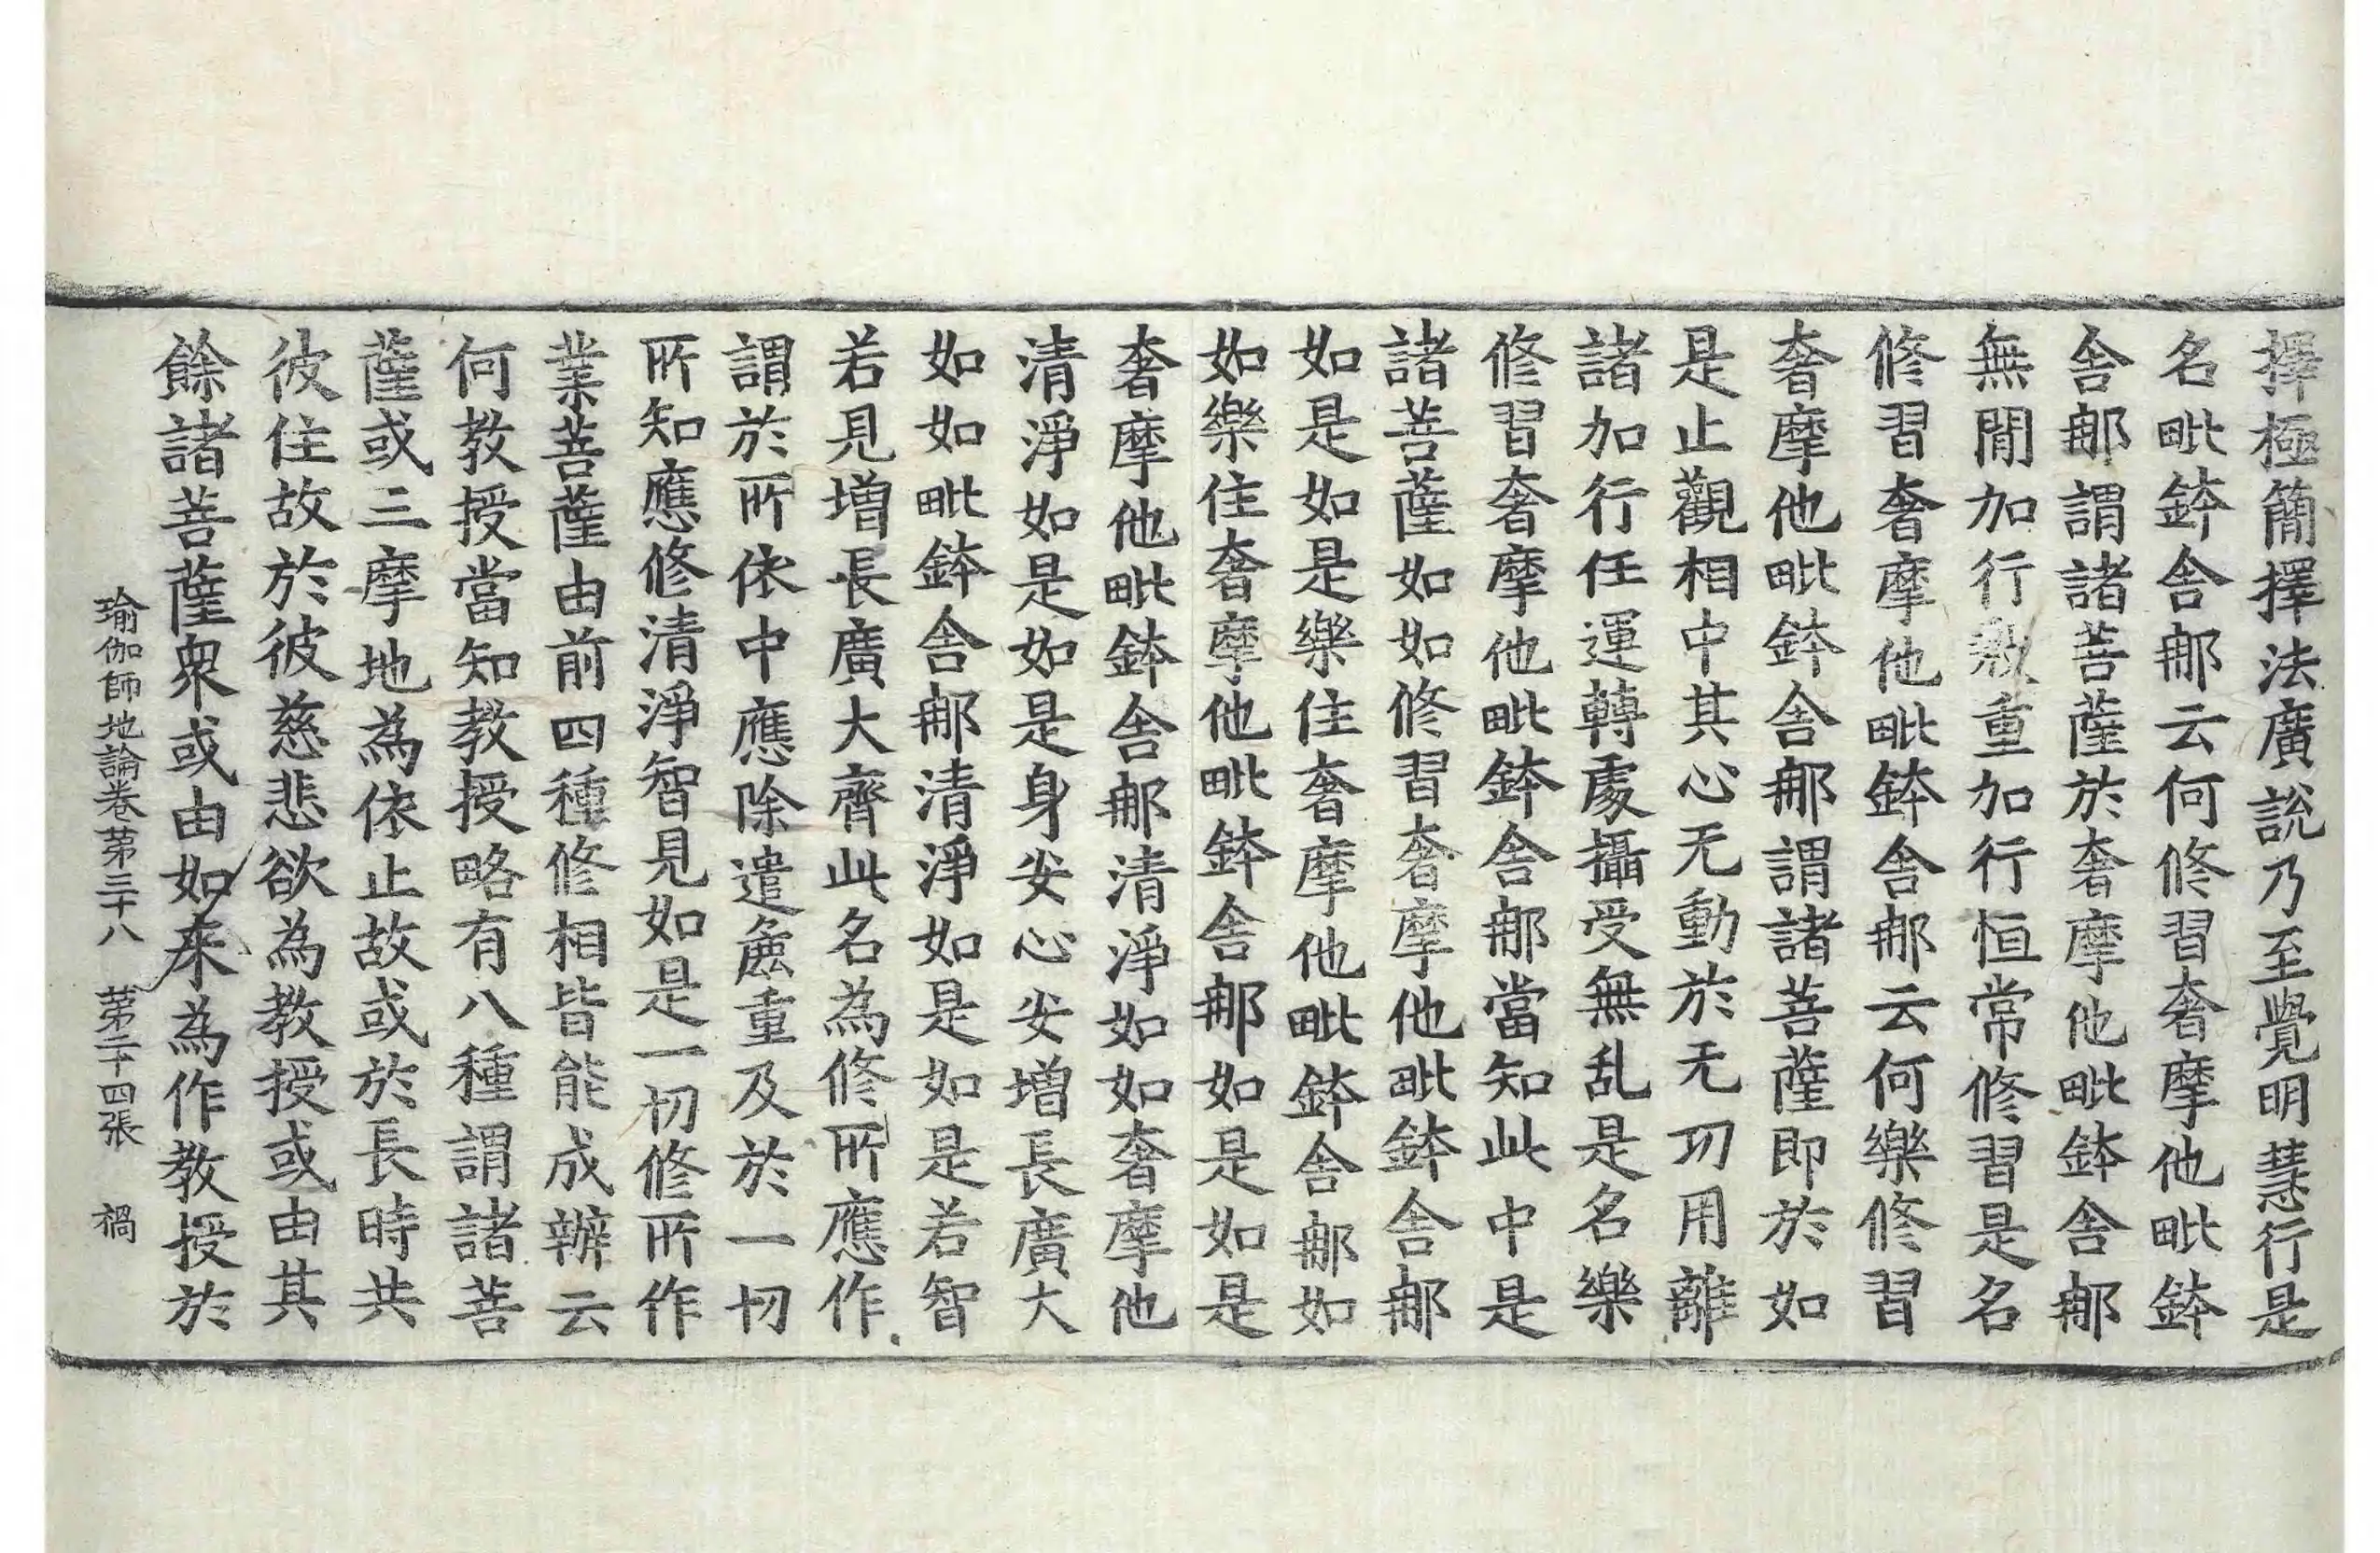 擇極簡擇法廣說乃至覺明慧行是
名毗鉢舍那云何修習奢摩他毗鉢
舍那謂諸菩薩於奢摩他毗鉢舍那
無閒加行慇重加行恒常修習是名
修習奢摩他毗鉢舍那云何樂修習
奢摩他毗鉢舍那謂諸菩薩即於如
是止觀相中其心无動於无功用離
諸加行任運轉處攝受無乱是名樂
修習奢摩他毗鉢舍那當知此中是
諸菩薩如如修習奢摩他毗鉢舍那
如是如是樂住奢摩他毗鉢舍那如
如樂住奢摩他毗鉢舍那如是如是
奢摩他毗鉢舍那清淨如如奢摩他
清淨如是如是身安心安增長廣大
如如毗鉢舍那清淨如是如是若智
若見增長廣大齊此名為修所應作
謂於所依中應除遣麁重及於一切
所知應修清淨智見如是一切修所作
業菩薩由前四種修相皆能成辦云
何教授當知教授略有八種謂諸菩
薩或三摩地為依止故或於長時共
彼住故於彼慈悲欲為教授或由其
餘諸菩薩衆或由如来為作教授於
瑜伽師地論卷苐三十八 苐二十四張 禍